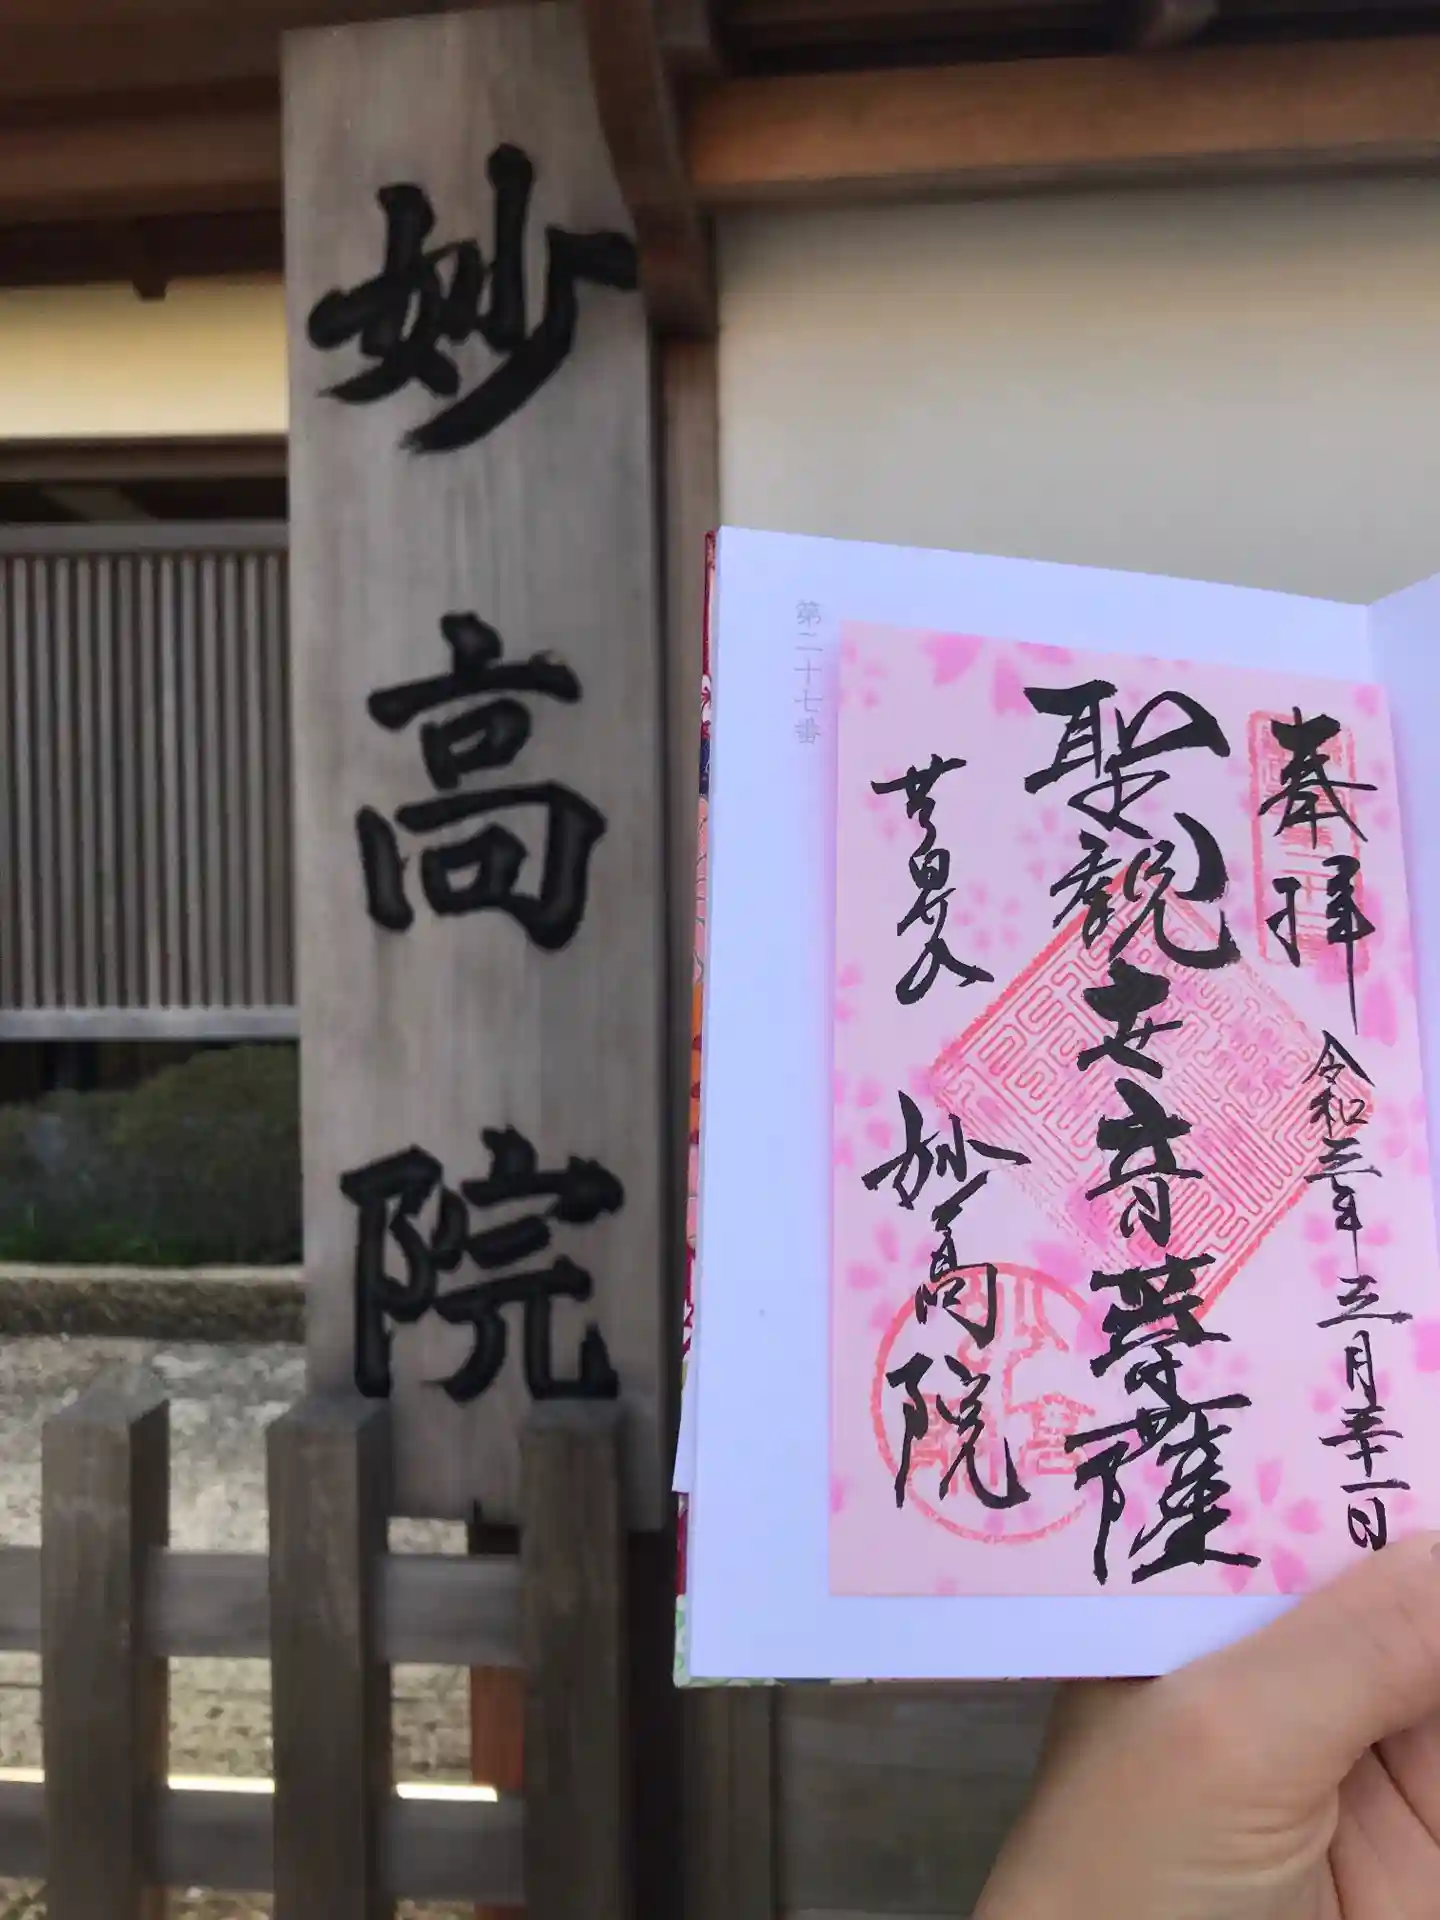 妙高院
第二十七番
奉拝
令和三年三月二十一日
聖観世音菩薩
妙高院